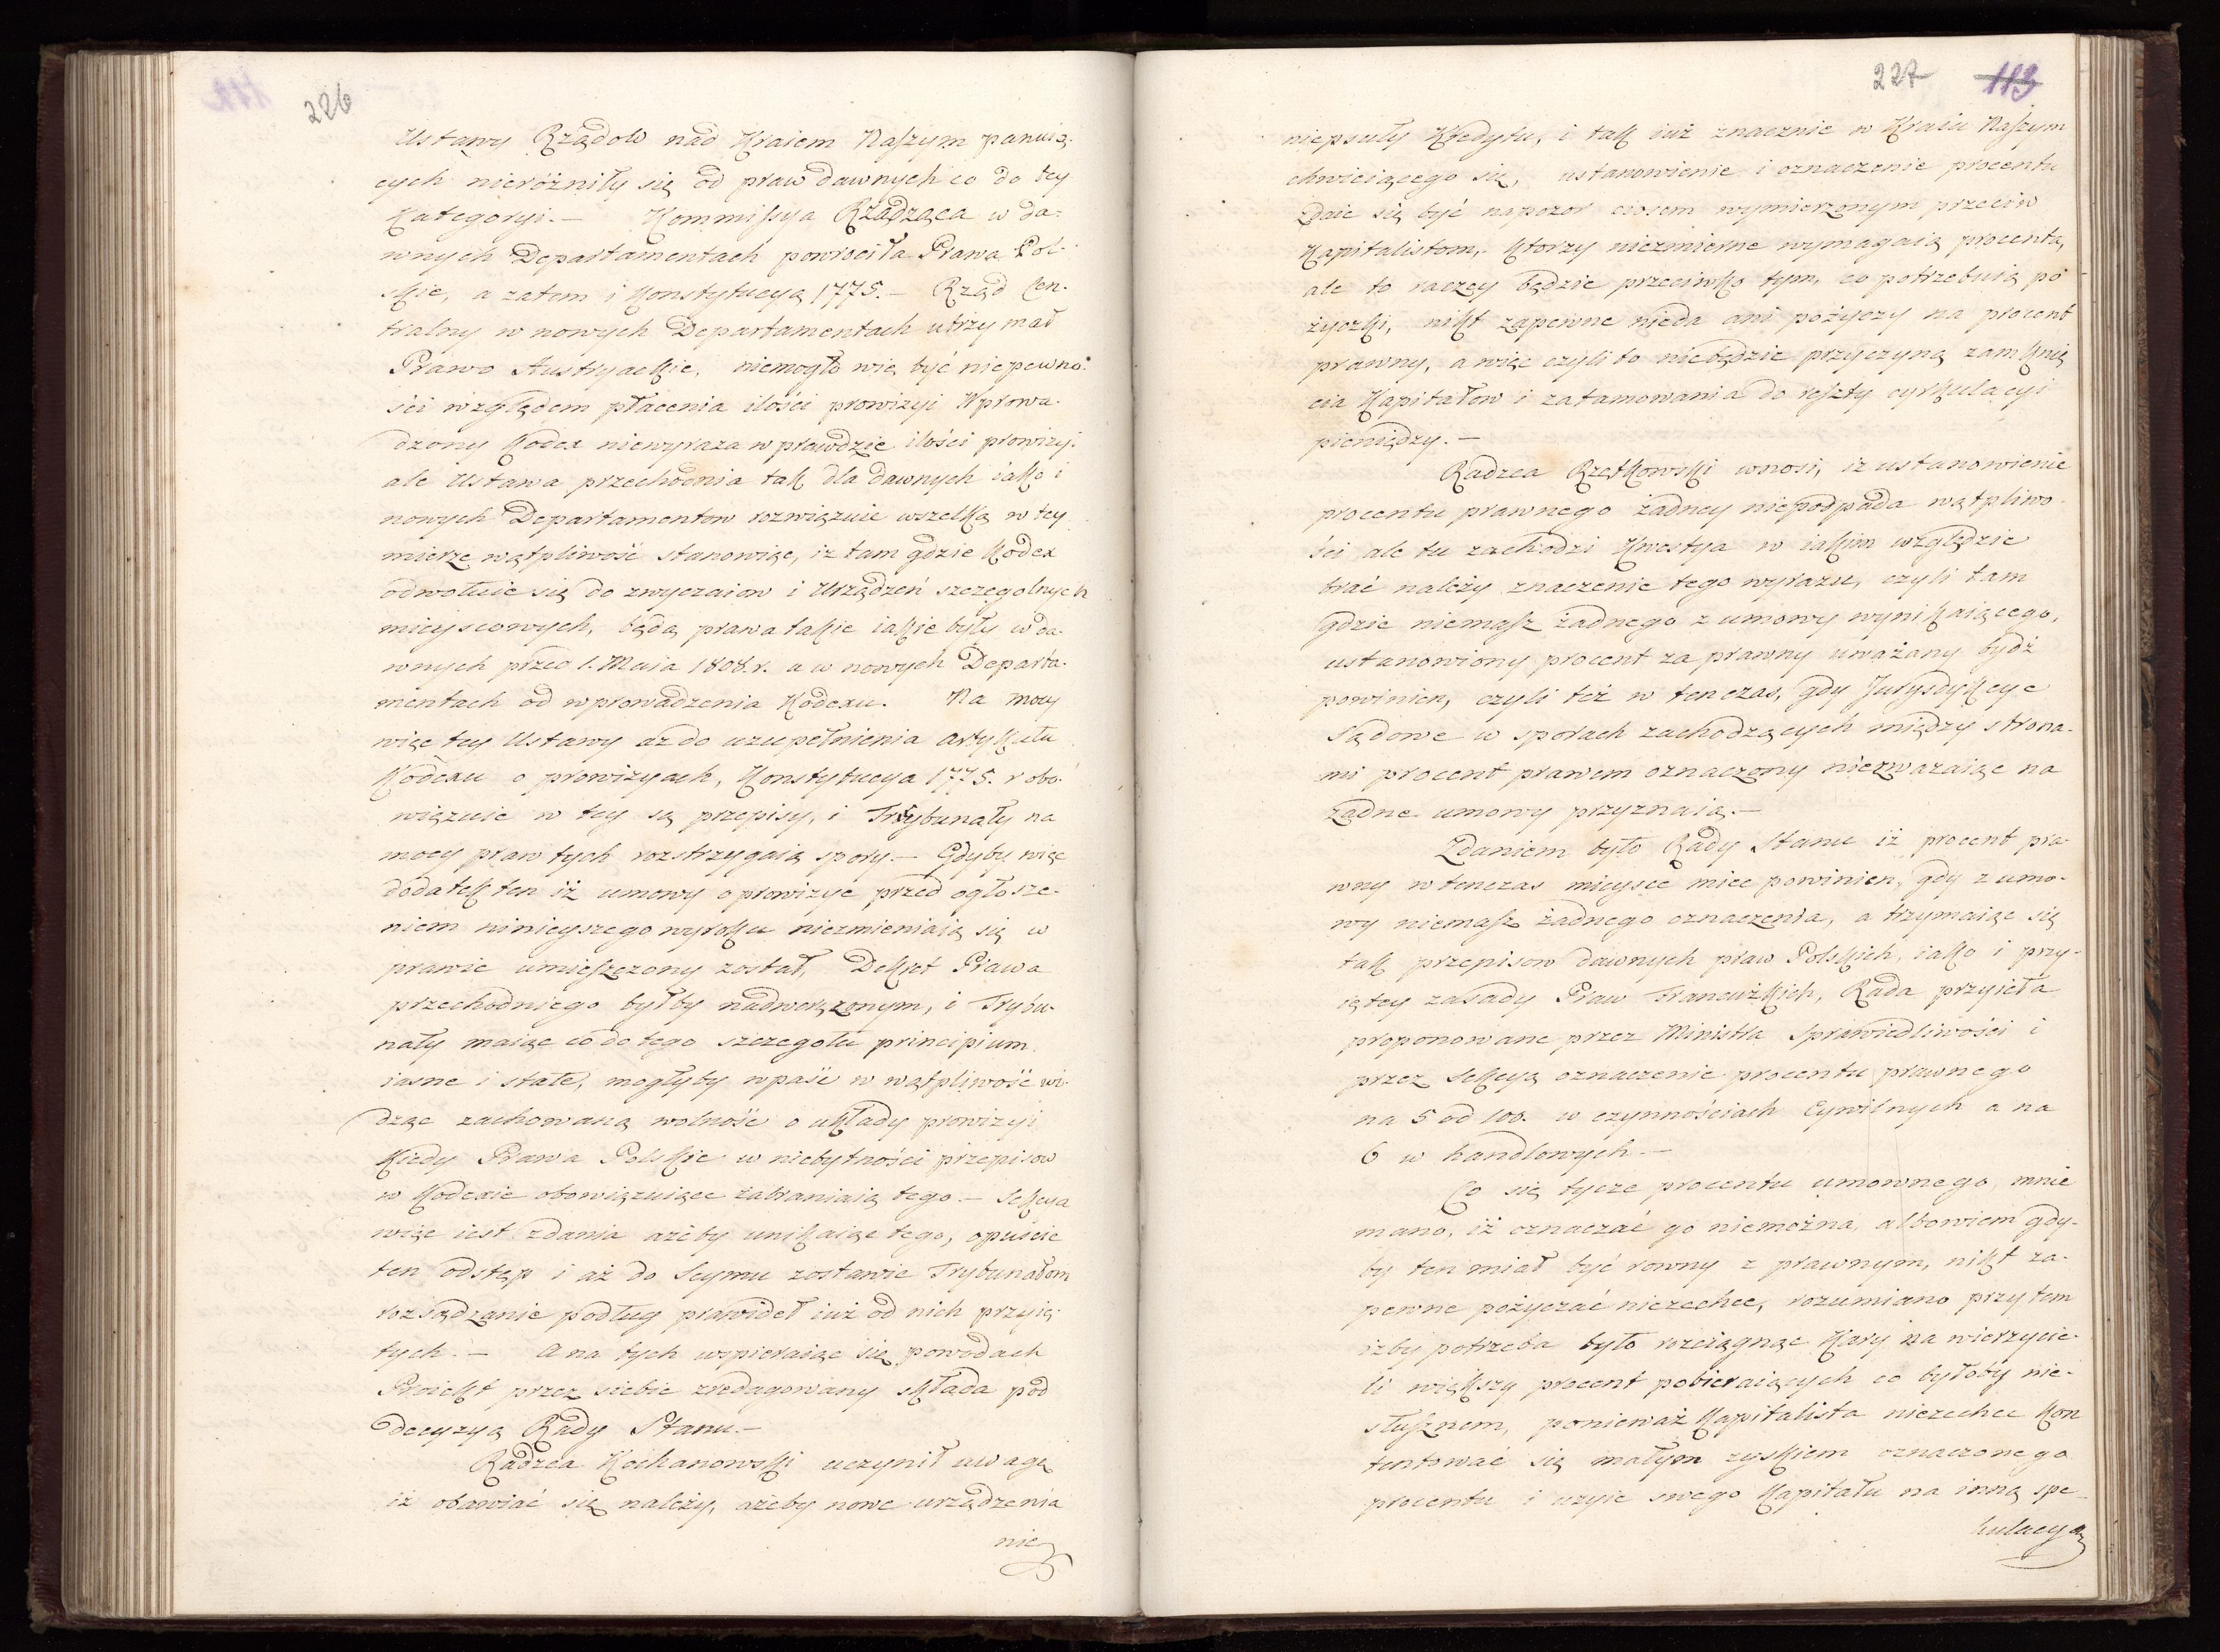 226
Ustawy Rządow nad Kraiem Naszym panuią-
cych nieróżniły się od praw dawnych co do tey
Kategoryi. — Kommissya Rządząca w da-
wnych Departamentach powrociła Prawa Pol-
skie, a zatem i Konstytucyą 1775. — Rząd Cen-
tralny w nowych Departamentach utrzymał
Prawo Austryackie, niemogło więc być niepewno-
ści względem płacenia ilości prowizyi Wprowa-
dzony Kodex niewyraza w prawdzie ilości prowizyi
ale Ustawa przechodnia tak dla dawnych iako i
nowych Departamentow rozwiązuie wszelką w tey
mierze wątpliwość stanowiąc, iz tam gdzie Kodex
odwołuie się do zwyczaiow i Urządzeń szczegolnych
mieyscowych, będą prawa takie iakie były w da-
wnych przed 1. Maia 1808. r. a w nowych Departa-
mentach od wprowadzenia Kodexu. Na mocy
więc tey Ustawy az do uzupełnienia artykułu
Kodexu o prowizyach, Konstytucya 1775. r obo-
wiązuie w tey są przepisy, i Trybunały na
mocy praw tych rozstrzygaią spory. — Gdyby więc
dodatek ten iż umowy o prowizye przed ogłosze-
niem ninieyszego wyroku niezmieniaią się w
prawie umieszczony został, Dekret Prawa
przechodniego byłby nadwerężonym, i Trybu-
nały maiąc co do tego szczegołu principium
iasne i stałe, mogłyby wpaść w wątpliwość wi-
dząc zachowaną wolność o układy prowizyi
Kiedy Prawa Polskie w niebytności przepisow
w Kodexie obowiązuiące zabraniaią tego. — Sekcya
więc iest zdania ażeby unikaiąc tego, opuście
ten odstęp i aż do Seymu zostawie Trybunałom
rozsądzanie podług prawideł iuż od nich przyię-
tych. — A na tych wspieraiąc się powodach
Proiekt przez siebie zredagowany składa pod
decyzyą Rady Stanu. —
Radzca Kochanowski uczynił uwagę
iż obawiać się należy, ażeby nowe urządzenia
nie
227 113
niepsuły Kredytu, i tak iuż znacznie w Kraiu Naszym
chwieiącego się, ustanowienie i oznaczenie procentu
Zdaie się być napozor ciosem wymierzonym przeciw
Kapitalistom, Ktorzy niezmierne wymagaią procenta,
ale to raczey będzie przeciwko tym, co potrzebuią po
życzki, nikt zapewne nieda ani pożyczy na procent
prawny, a więc czyli to niebędzie przyczyną zamknię
cia Kapitałow i zatamowania do reszty cyrkulacyi
pieniędzy. —
Radzca Rzętkowski wnosi, iz ustanowienie
procentu prawnego żadney niepodpada wątpliwo-
ści ale tu zachodzi Kwestya w iakim względzie
brać należy znaczenie tego wyrazu, czyli tam
gdzie niemasz żadnego z umowy wynikaiącego,
ustanowiony procent za prawny uważany bydż
powinien, czyli też w ten czas, gdy Jurysdykcye
Sądowe w sporach zachodzących między strona-
mi procent prawem oznaczony niezwazaiąc na
żadne umowy przyznaią. —
Zdaniem było Rady Stanu iż procent pra-
wny w tenczas mieysce miec powinien, gdy z umo-
wy niemasz żadnego oznaczenia, a trzymaiąc się
tak przepisow dawnych praw Polskich, iako i przy-
iętey zasady Praw Francuzkich, Rada przyięła
proponowane przez Ministra Sprawiedliwości i
przez Sekcyą oznaczenie procentu prawnego
na 5 od 100. w czynnościach Cywilnych a na
6 w handlowych. —
Co się tycze procentu umownego mnie
mano, iż oznaczać go niemożna, albowiem gdy-
by ten miał być rowny z prawnym, nikt za-
pewne pożyczać niezechce, rozumiano przytem
izby potrzeba było rozciągnąc Kary na wierzycie-
li większy procent pobieraiących co byłoby nie-
słusznem, ponieważ Kapitalista niezechce Kon
tentować się małym zyskiem oznaczonego
procentu i uzyie swego Kapitału na inną spe-
kulacyą